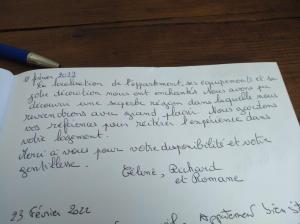 février 2022
La localisation de l'appartement, ses équipements et sa
jolie décoration nous ont enchantés. Nous avons pu
découvrir une superbe région dans laquelle nous
reviendrons avec grand plaisir. Nous gardons
vos références pour réitérer l'expérience dans
votre logement.
Merci à vous pour votre disponibilité et votre
gentillesse.
Céline, Richard
et Romane
23 février 2022
Appartement bien